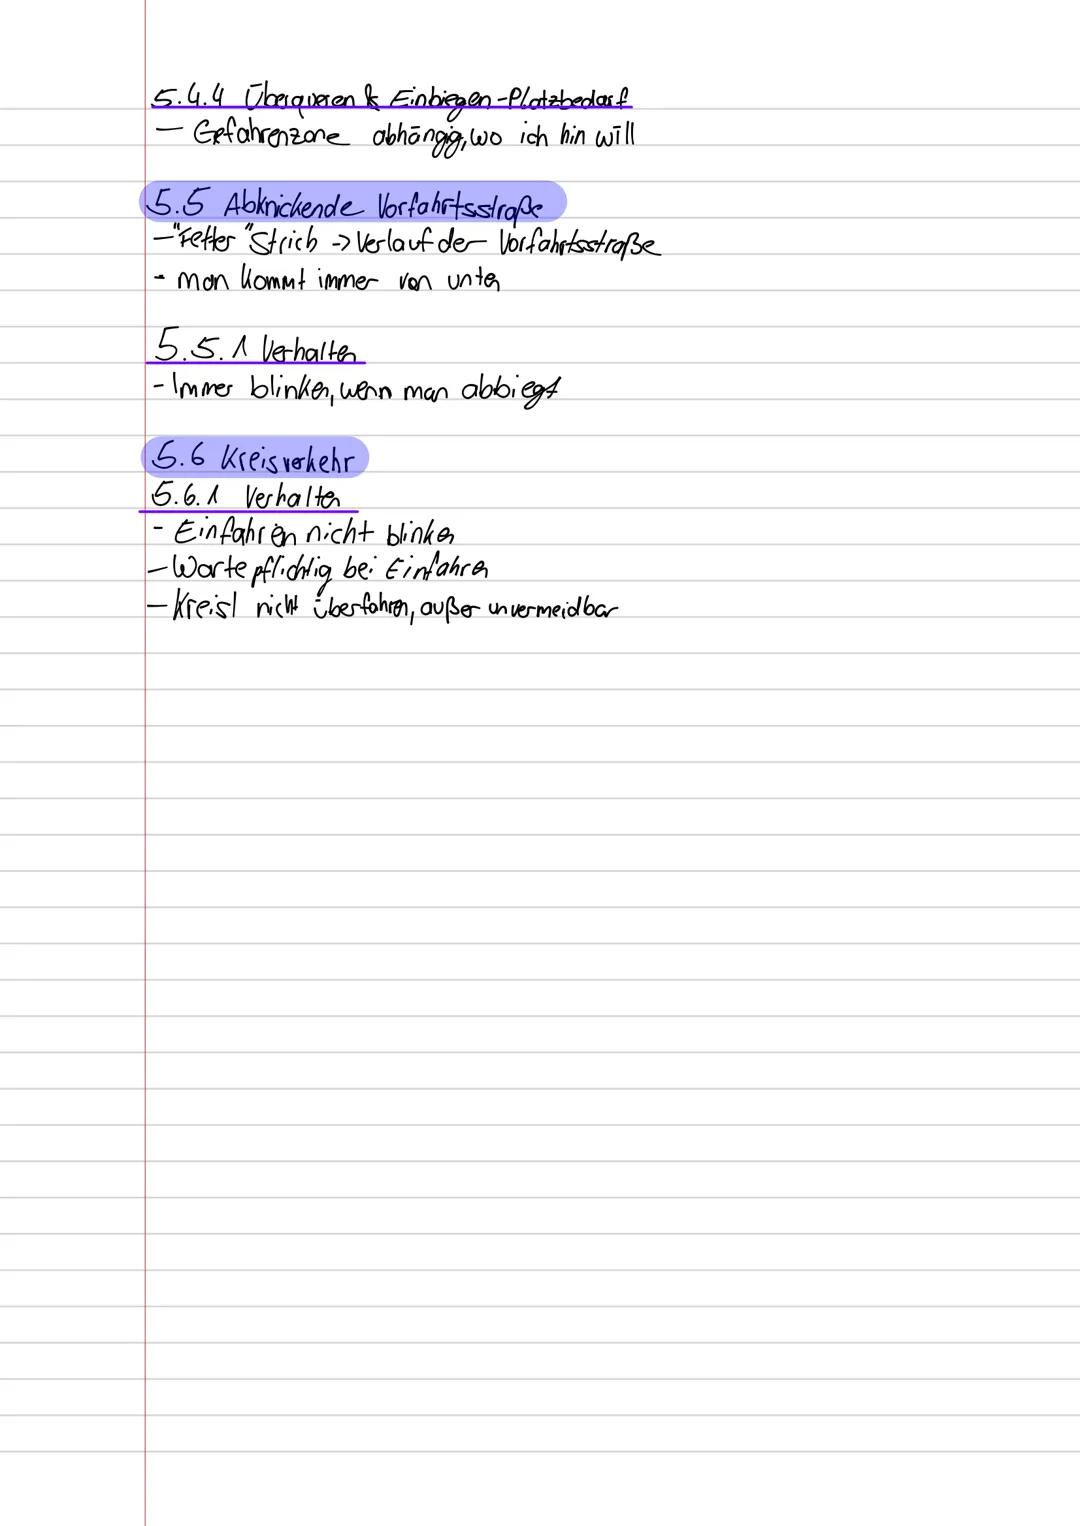 5.4.4 Überqueren & Einbiegen-Platzbedarf
- Gefahrenzone abhängig, wo ich hin will
5.5 Abknickende Vorfahrtsstraße
- "Fetter" Strich -> Verlauf der Vorfahrtsstraße
- man kommt immer von unten
5.5.1 Verhalten
- Immer blinken, wenn man abbiegt
5.6 Kreisverkehr
5.6.1 Verhalten
- Einfahren nicht blinken
- Wartepflichtig bei Einfahren
- Kreisl nicht überfahren, außer unvermeidbar